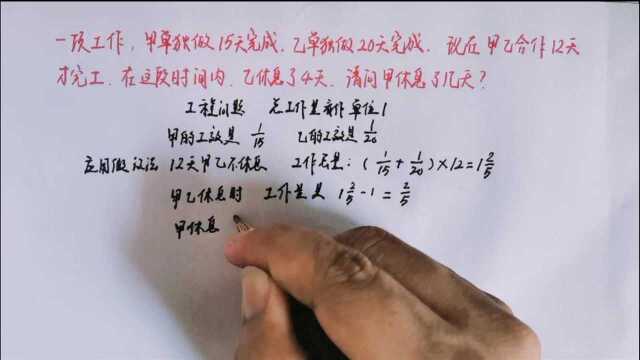 一项工作，甲单独做15天完成，乙单独做20天完成．现在甲乙合作12天
才完工．在这段时间内，乙休息了4天．请问甲休息了几天？
工程问题 总工作量看作单位1
甲的工效是 1/15 乙的工效是 1/20
应用假设法 12天甲乙不休息 工作总量：(1/15 + 1/20)×12=1 2/5
甲乙休息时 工作量是 1 2/5 - 1 = 2/5
甲休息